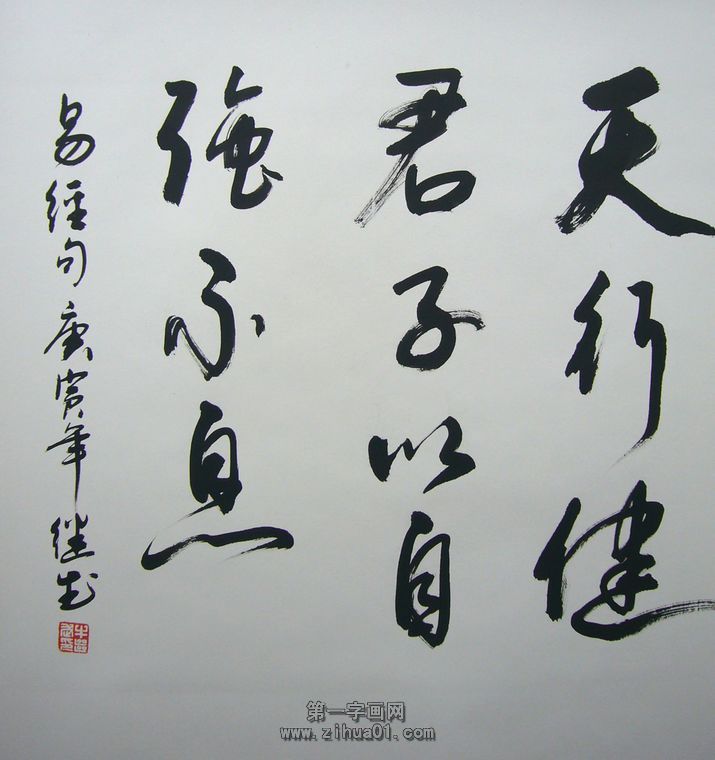 天行健
君子以自
強不息
易經句庚寅年继武
第一字画网
www.zihua01.com